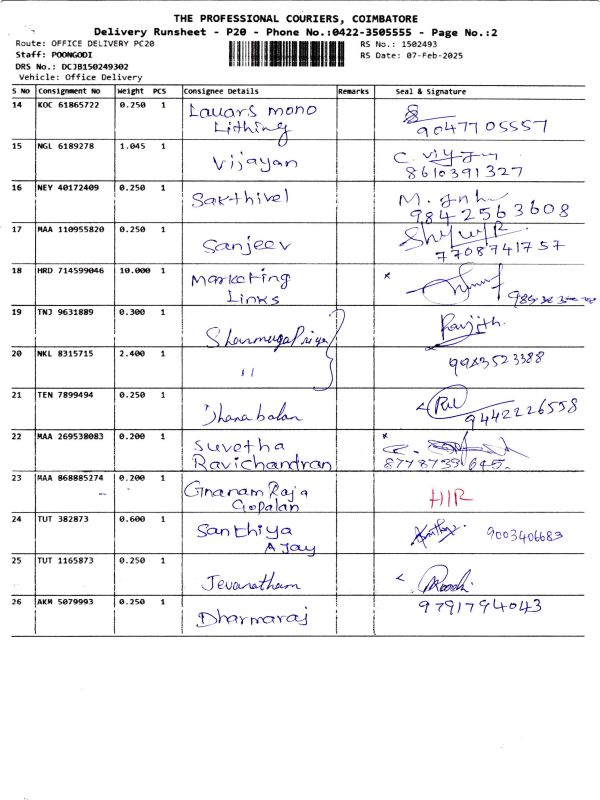 THE PROFESSIONAL COURIERS, COIMBATORE
Delivery Runsheet - P20 - Phone No.:0422-3505555 - Page No.:2
Route: OFFICE DELIVERY PC20
RS No.: 1502493
Staff: POONGODI
RS Date: 07-Feb-2025
DRS No.: DCJB150249302
Vehicle: Office Delivery
S No Consignment No Weight PCS Consignee Details Remarks Seal & Signature
14 KOC 61865722 0.250 1 Lavars mono
Lithing
9047705557
15 NGL 6189278 1.045 1 Vijayan
8610391327
16 NEY 40172409 0.250 1 Sakthivel
9842563608
17 MAA 110955820 0.250 1 Sanjeev
7708741757
18 HRD 714599046 10.000 1 Marketing
Links
19 TNJ 9631889 0.300 1 ShanmugaPriya
Ranjith.
20 NKL 8315715 2.400 1 "
9983523388
21 TEN 7899494 0.250 1 Dhanabalan
9442226558
22 MAA 269538083 0.200 1 Suvetha
Ravichandran
8778739645.
23 MAA 868885274 0.200 1 Gnanam Raja
Gopalan
HIR
24 TUT 382873 0.600 1 Santhiya
AJay
9003406683
25 TUT 1165873 0.250 1 Jevanatham
26 AKM 5079993 0.250 1 Dharmaraj
9791794043